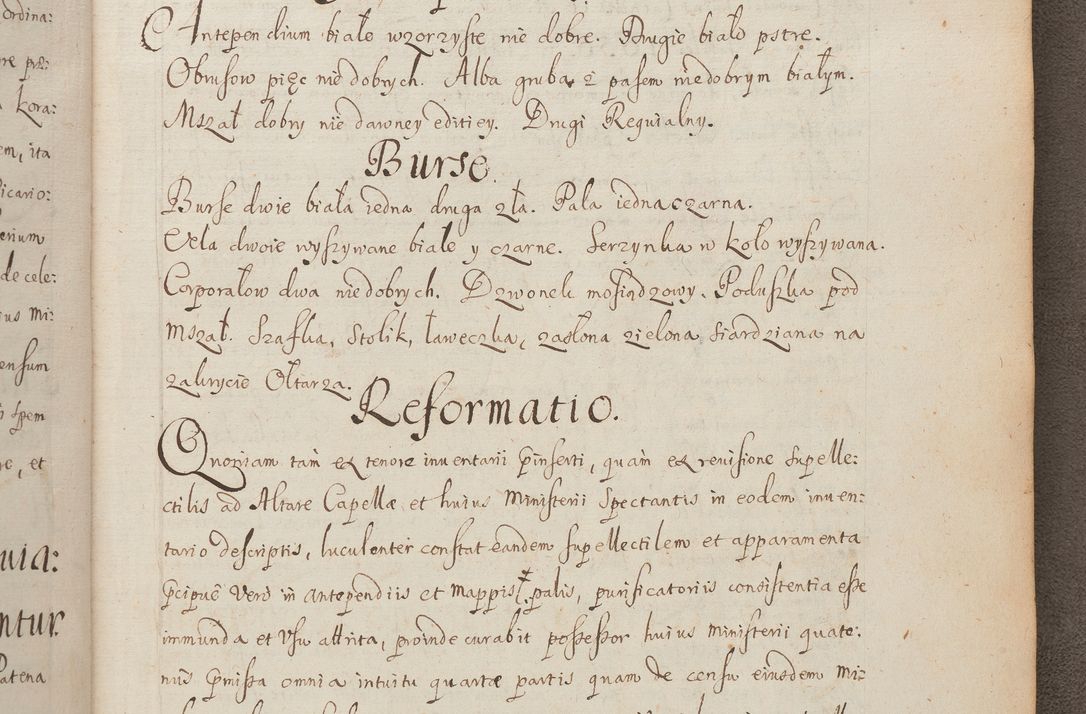 ordina:
Antependium białe wzorzyste nie dobre. Drugie białe pstre.
re præ:
Obrusow pięc nie dobrych. Alba gruba z pasem niedobrym białym.
kora:
Mszał dobry nie dawney editiey. Drugi Requialny.
em, ita
Burse.
icario:
Burse dwie biała iedna druga zła. Pala iedna czarna.
erium
Vela dwoie wyszywane białe y czarne. Serzynka w koło wyszywana.
de cele:
Corporałow dwa niedobrych. Dzwonek mosiądzowy. Poduszka pod
ius Mi:
Mszał. Szafka, Stolik, ławeczka, zasłona zielona Siardziana na
ensum
zakrycie Ołtarza.
spem
Reformatio.
re, et
Quoniam tam ex tenore inuentarii p̃inserti, quam ex reuisione supelle:
ctilis ad Altare Capellæ et huius Ministerii Spectantis in eodem inuen:
tario descriptis, luculenter constat eandem supellectilem et apparamenta
uia:
p̃cipuè vero in antependiis et mappis, palis, purificatoriis consistentia esse
ntur.
immunda et Vsu attrita, proinde curabit possessor huius Ministerii quate:
Patena
nus p̃missa omnia intuitu quartæ partis quam de censu eiusdem Mi: